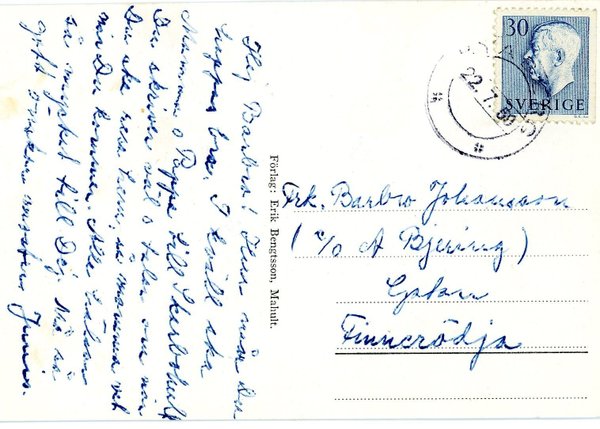 Hej Barbro! Hur mår Du
hoppas bra. I kväll ska
Mamma o Pappa till Skarbohult
Du skriver väl o talar om när
Du ska resa hem, så mamma vet
när Du kommer. Alla hälsar
så mycket till Dig. Må så
gott önskar moster Junis.
Förlag: Erik Bengtsson, Mahult.
30
SVERIGE
22.7.60
Frk. Barbro Johansson
(c/o A Bjering)
Finnerödja